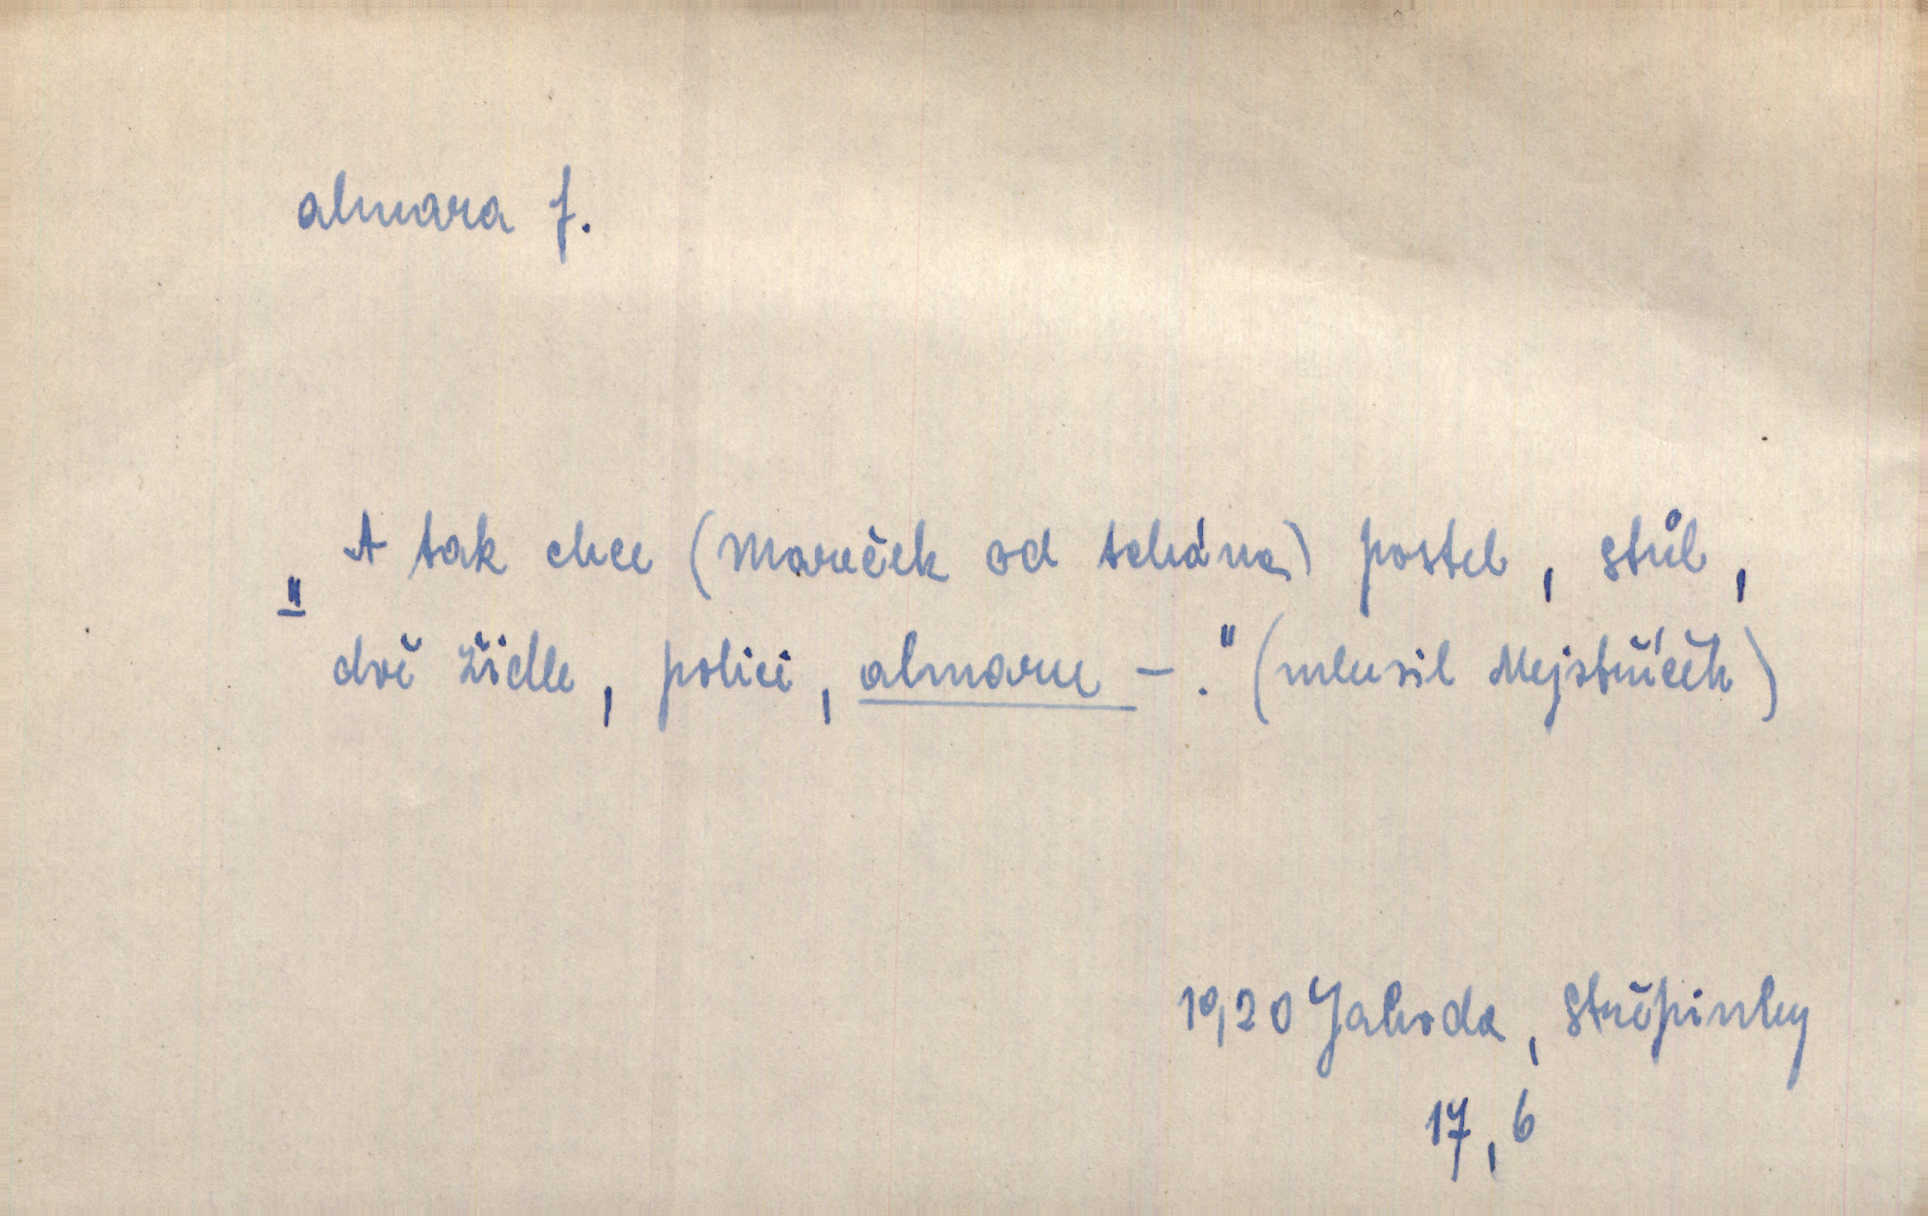 almara f.
„ A tak chce (Mareček od tchána) postel, stůl,
dvě židle, polici, almaru -." (mluvil Mejstříček)
19,20 Jahoda, Střepinky
17,6